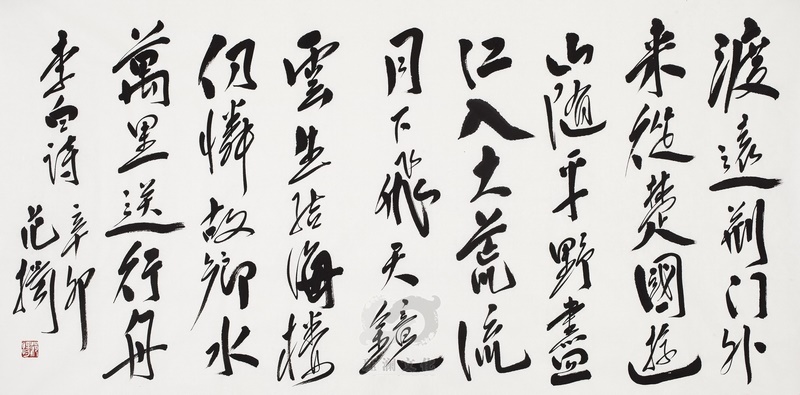 渡遠荆门外
来從楚國遊
山随平野盡
江入大荒流
月下飛天鏡
雲生结海楼
仍憐故鄉水
萬里送行舟
李白诗
辛卯
范